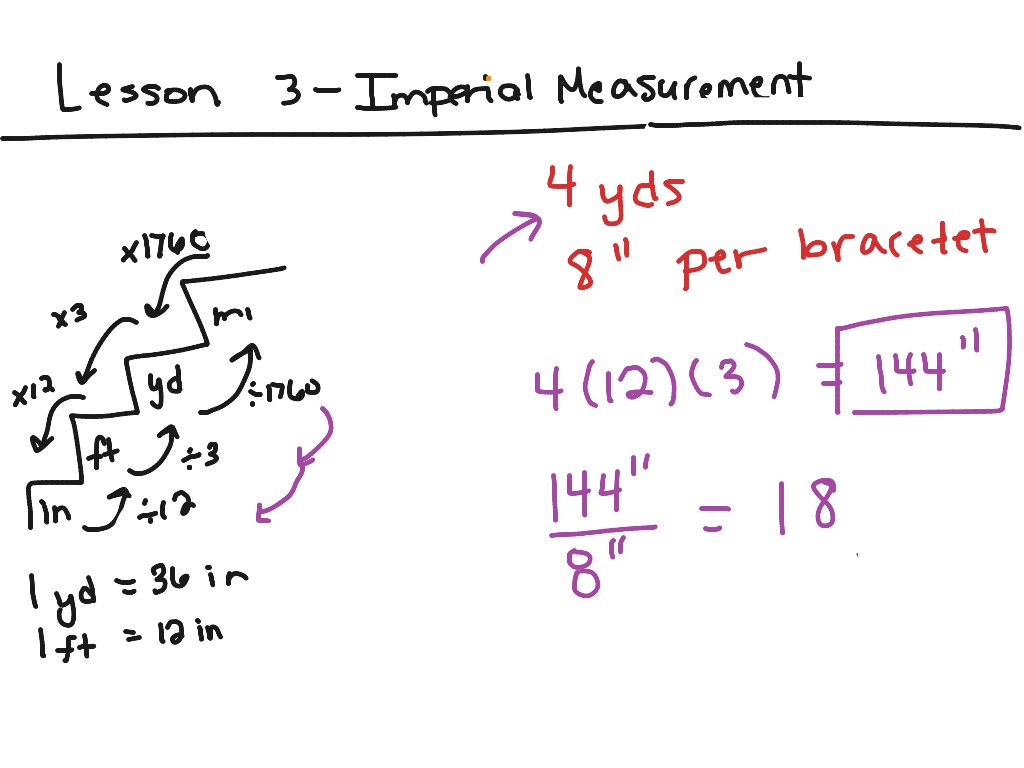 Lesson 3 - Imperial Measurement
4 yds
8" per bracelet
x1760
mi
x3
yd
÷1760
x12
ft
÷3
in
÷12
1 yd = 36 in
1 ft = 12 in
4 (12) (3) = 144"
144"
8"
= 18